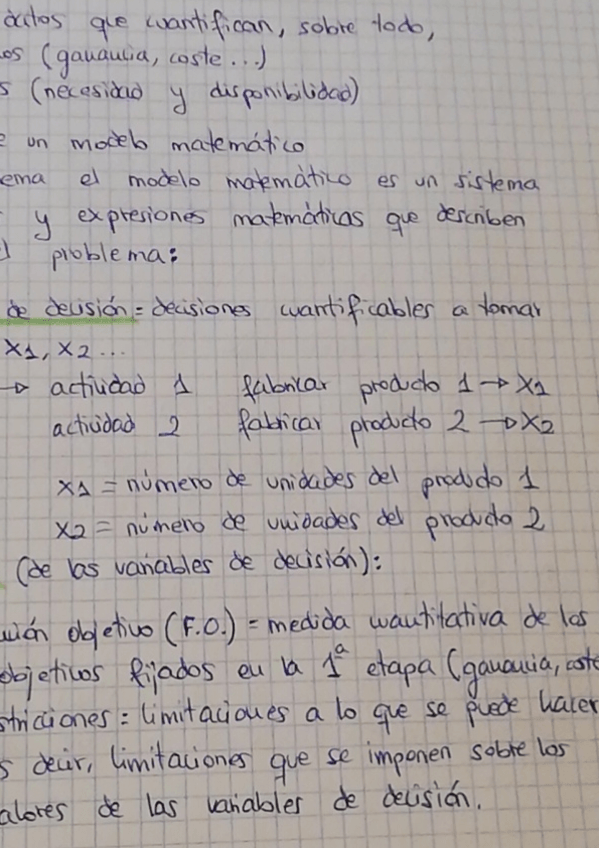 datos que cuantifican, sobre todo,
os (ganancia, coste...)
s (necesidad y disponibilidad)
e un modelo matemático
ema el modelo matemático es un sistema
y expresiones matemáticas que describen
l problema:
de decisión = decisiones cuantificables a tomar
X1, X2...
→ actividad 1 fabricar producto 1 → X1
actividad 2 fabricar producto 2 → X2
X1 = número de unidades del producto 1
X2 = número de unidades del producto 2
(de las variables de decisión):
ción objetivo (F.O.) = medida cuantitativa de los
objetivos fijados en la 1ª etapa (ganancia, coste
stricciones = limitaciones a lo que se puede hacer
s decir, limitaciones que se imponen sobre los
alores de las variables de decisión.